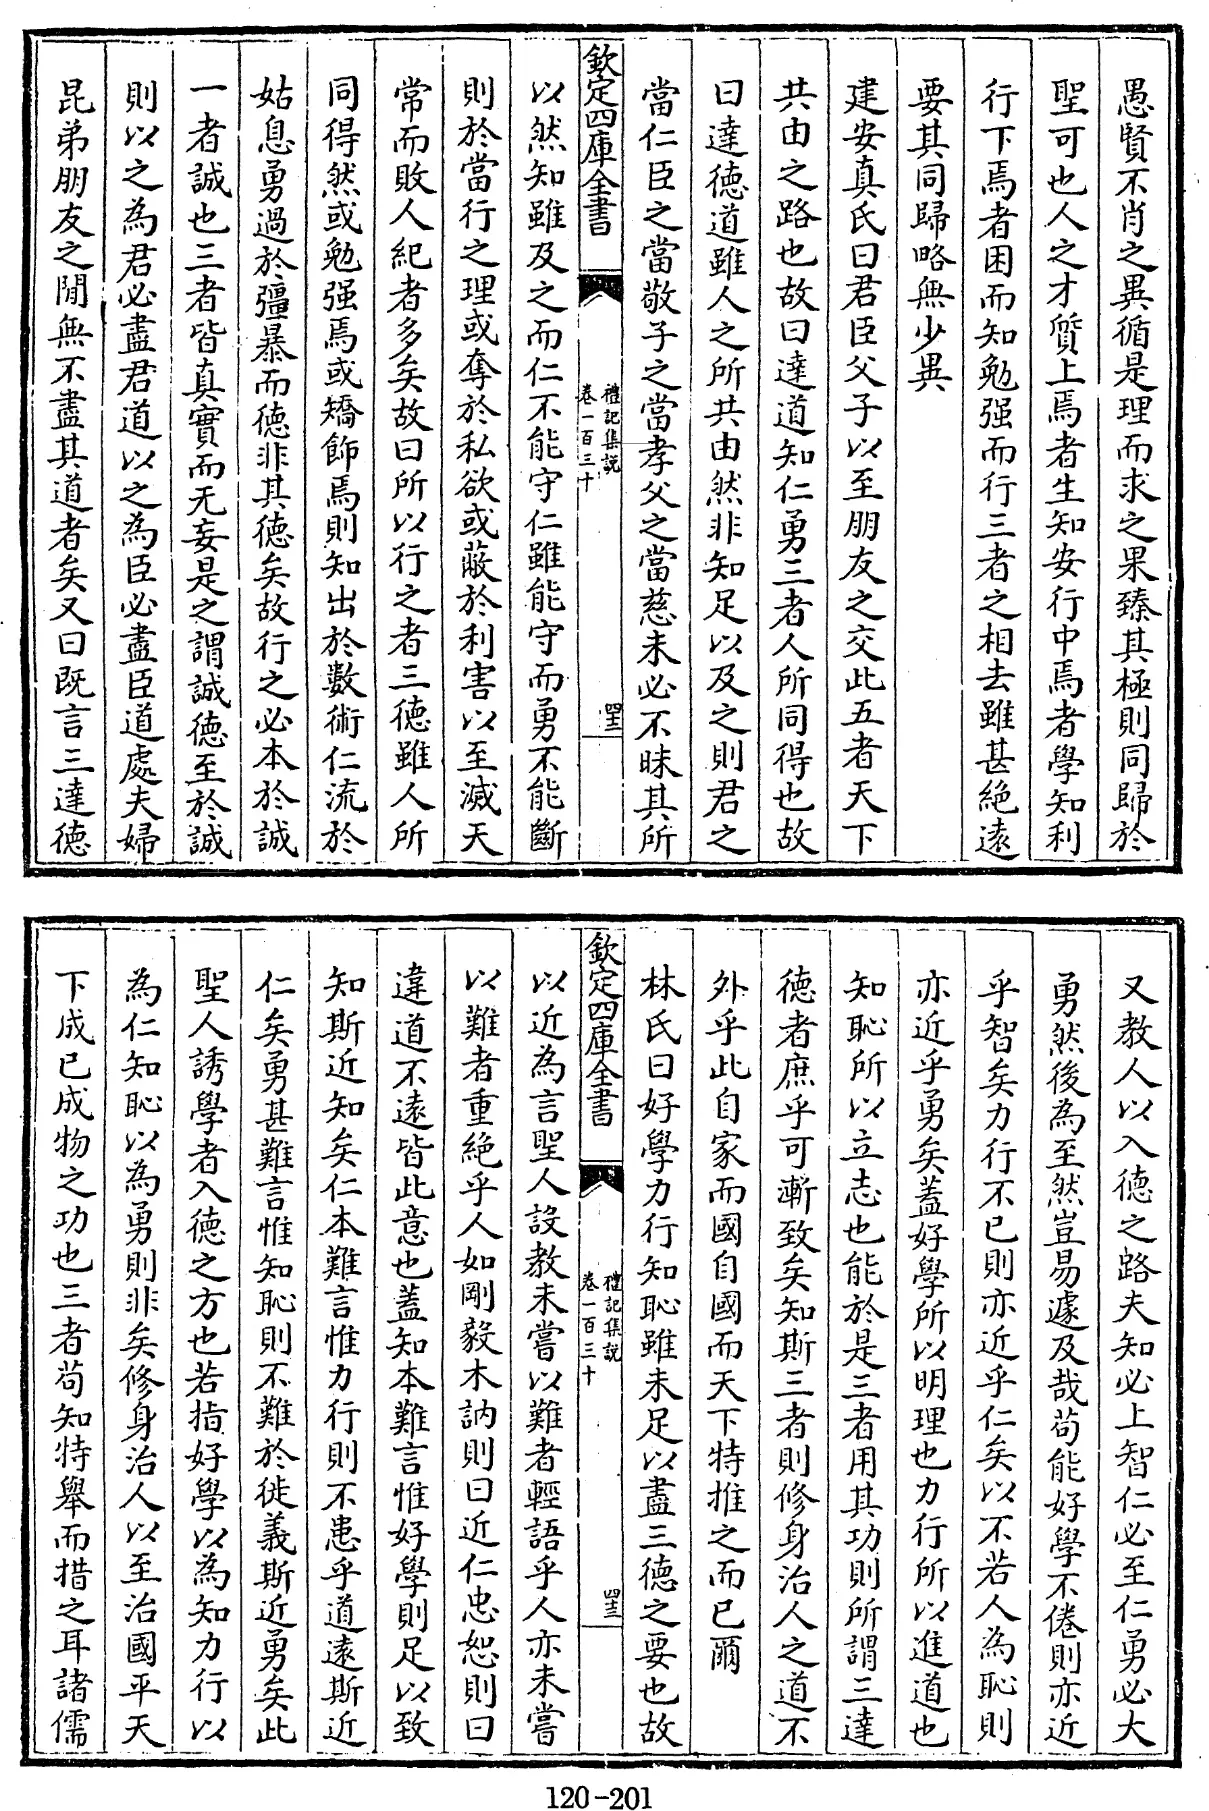 愚賢不肖之異循是理而求之果臻其極則同歸於
聖可也人之才質上焉者生知安行中焉者學知利
行下焉者困而知勉强而行三者之相去雖甚絶遠
要其同歸略無少異
建安真氏曰君臣父子以至朋友之交此五者天下
共由之路也故曰達道知仁勇三者人所同得也故
曰達德道雖人之所共由然非知足以及之則君之
當仁臣之當敬子之當孝父之當慈未必不昧其所
欽定四庫全書
禮記集說
卷一百三十
四三
以然知雖及之而仁不能守仁雖能守而勇不能斷
則於當行之理或奪於私欲或蔽於利害以至滅天
常而敗人紀者多矣故曰所以行之者三德雖人所
同得然或勉强焉或矯飾焉則知出於數術仁流於
姑息勇過於彊暴而德非其德矣故行之必本於誠
一者誠也三者皆真實而无妄是之謂誠德至於誠
則以之為君必盡君道以之為臣必盡臣道處夫婦
昆弟朋友之閒無不盡其道者矣又曰既言三達德
又教人以入德之路夫知必上智仁必至仁勇必大
勇然後為至然豈易遽及哉苟能好學不倦則亦近
乎智矣力行不已則亦近乎仁矣以不若人為恥則
亦近乎勇矣蓋好學所以明理也力行所以進道也
知恥所以立志也能於是三者用其功則所謂三達
德者庶乎可漸致矣知斯三者則修身治人之道不
外乎此自家而國自國而天下特推之而已爾
林氏曰好學力行知恥雖未足以盡三德之要也故
欽定四庫全書
禮記集說
卷一百三十
四三
以近為言聖人設教未嘗以難者輕語乎人亦未嘗
以難者重絶乎人如剛毅木訥則曰近仁忠恕則曰
違道不遠皆此意也蓋知本難言惟好學則足以致
知斯近知矣仁本難言惟力行則不患乎道遠斯近
仁矣勇甚難言惟知恥則不難於徙義斯近勇矣此
聖人誘學者入德之方也若指好學以為知力行以
為仁知恥以為勇則非矣修身治人以至治國平天
下成已成物之功也三者苟知特舉而措之耳諸儒
120-201